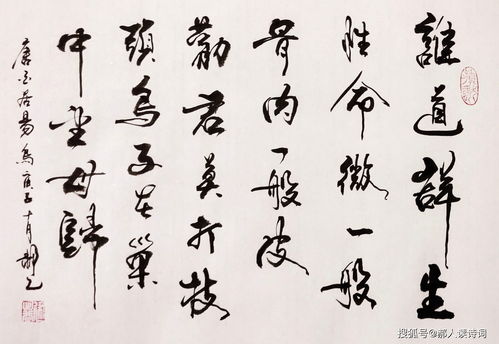 誰道群生
性命微一般
骨肉一般皮
勸君莫打枝
頭鳥子在巢
中望母歸
唐白居易鳥寅五十月
搜狐号@郝人读诗词